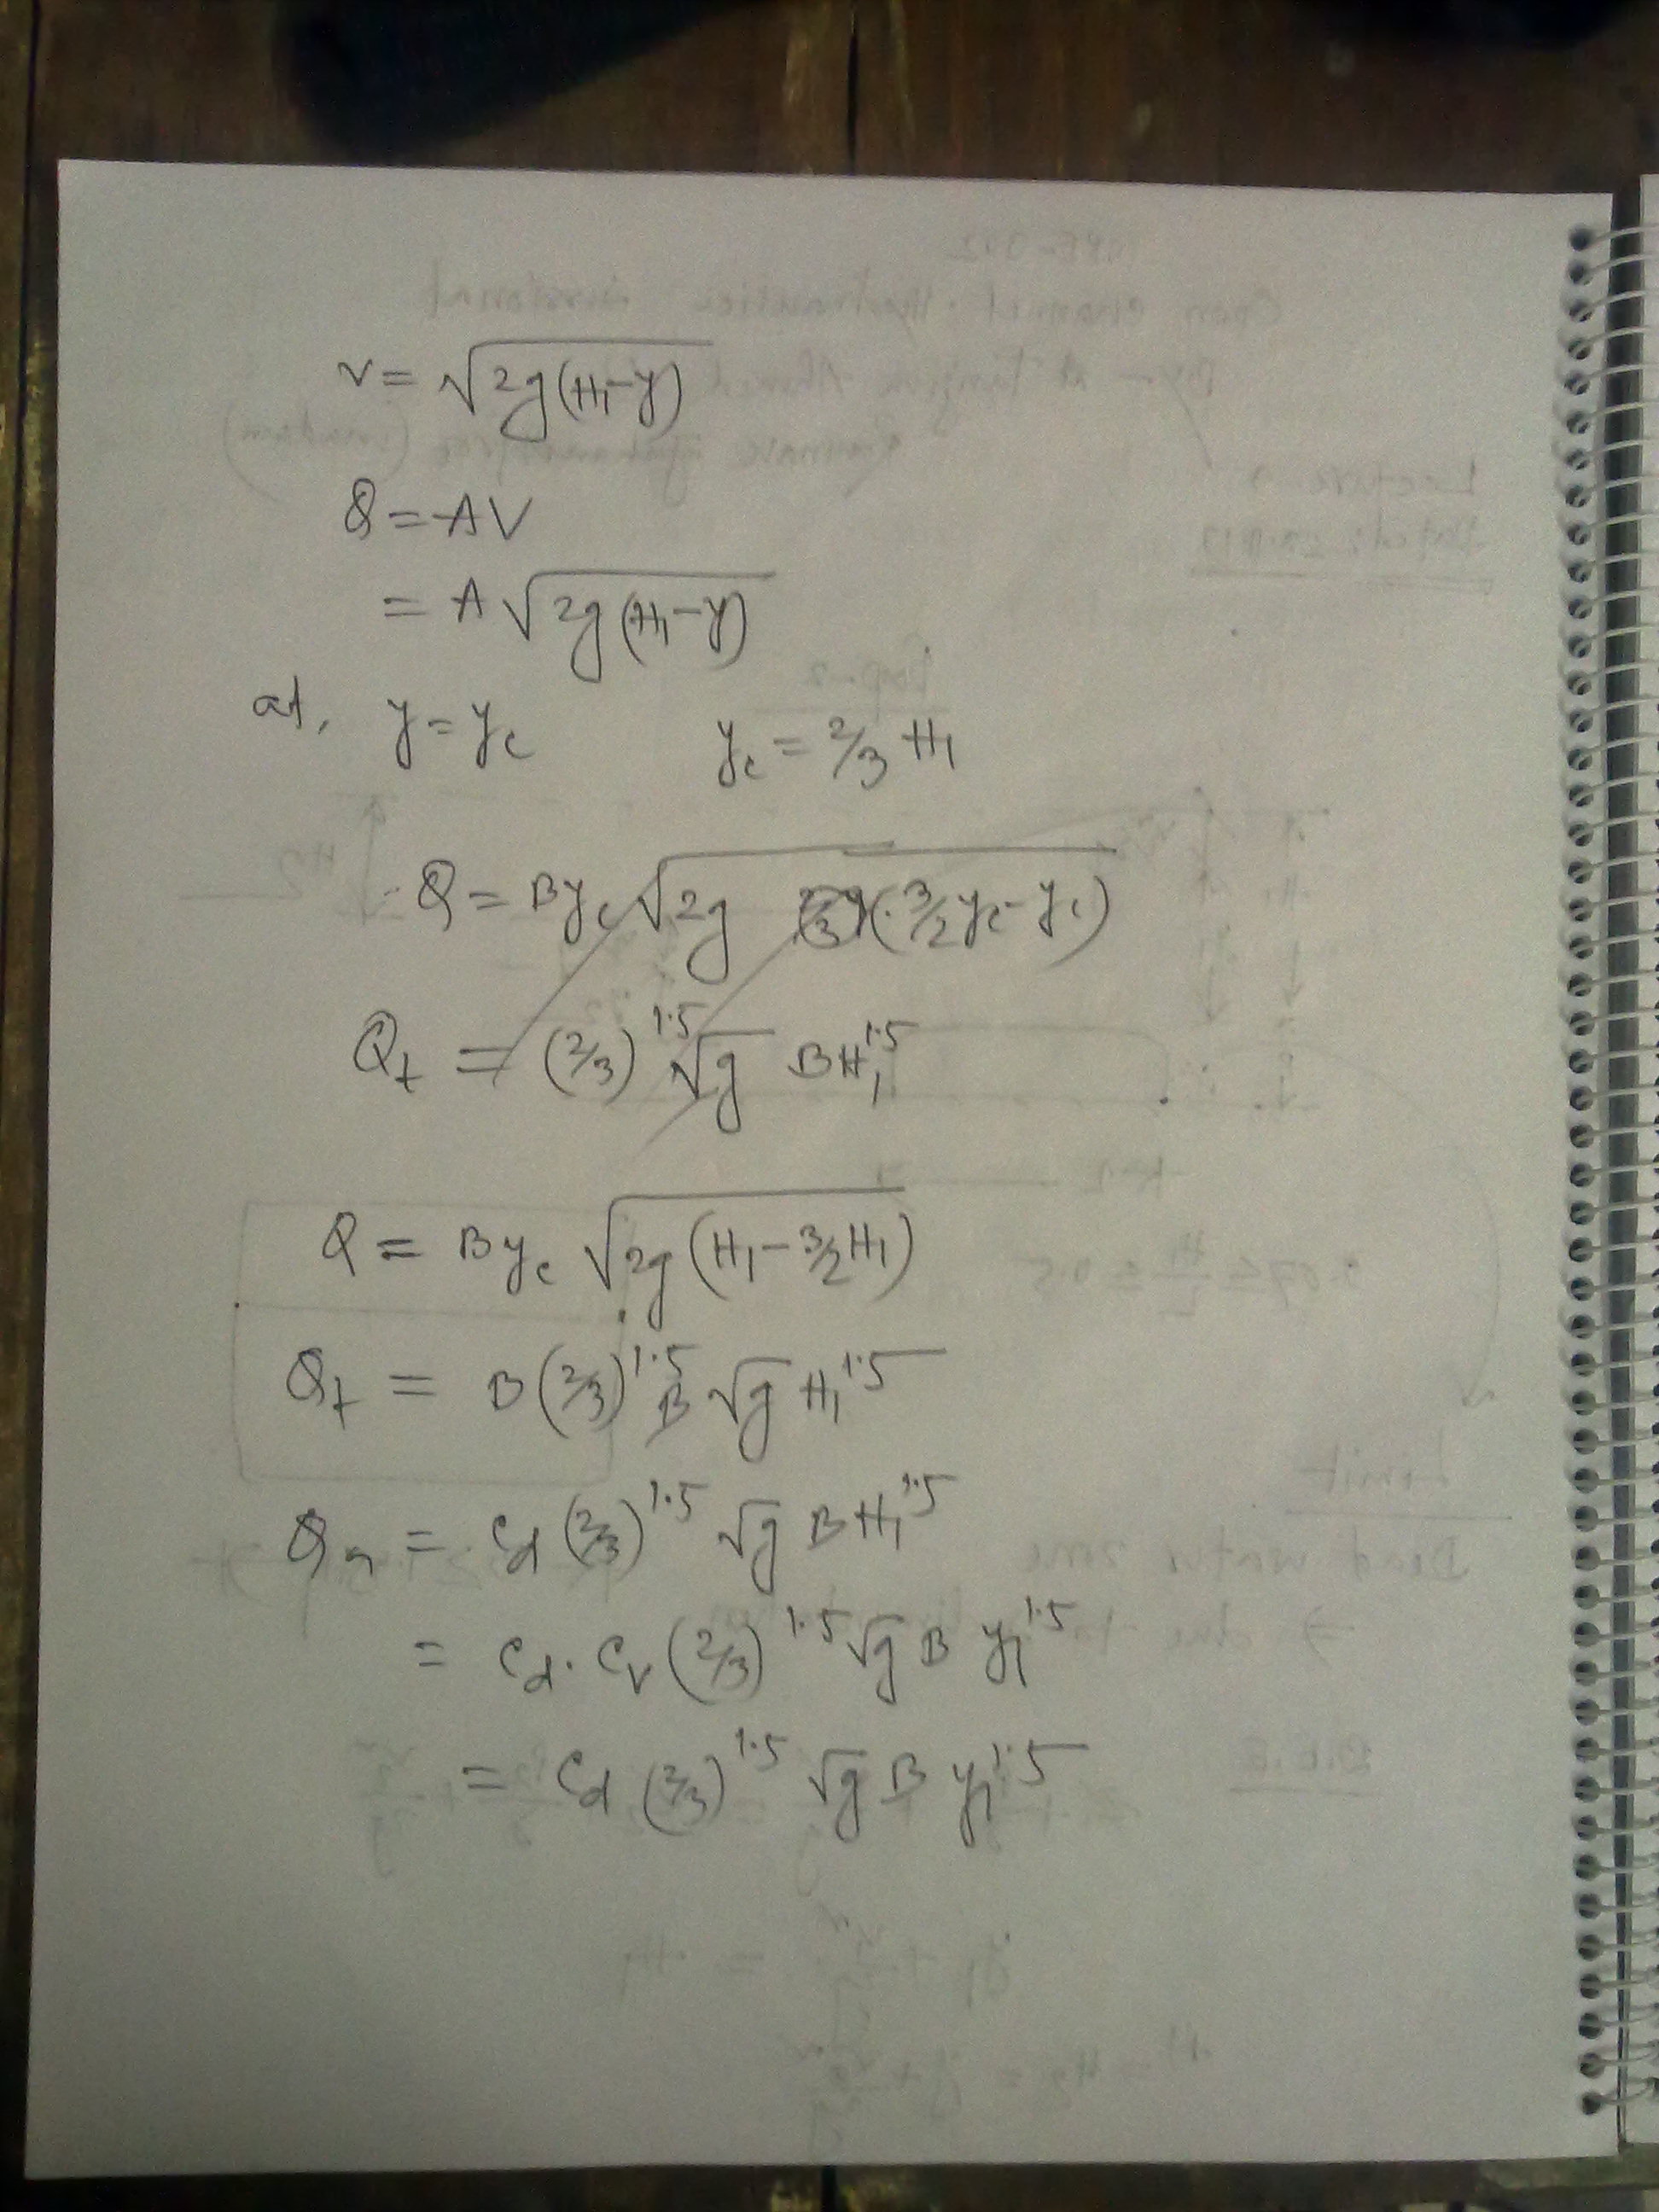 v = √2g(H₁-y)
Q = AV
= A √2g(H₁-y)
at, y = yc yc = 2/3 H₁
Q = Byc √2g (3/2 yc - yc)
Qt = (2/3)^1.5 √g BH₁^1.5
Q = Byc √2g(H₁ - 3/2 H₁)
Qt = B(2/3)^1.5 B √g H₁^1.5
Qa = Cd (2/3)^1.5 √g BH₁^1.5
= Cd. Cv (2/3)^1.5 √g B y₁^1.5
= Cd (2/3)^1.5 √g B y₁^1.5